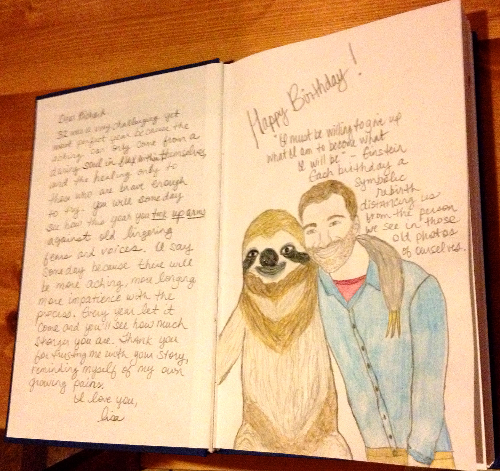 Dear Richard
32 was a very challenging yet
most perfect year because the
aching can only come from a
daring soul in themselves,
and the healing only to
those who are brave enough
to try. You will someday
see how this year you took up arms
against old lingering
fears and voices. I say
someday because there will
be more aching, more longing
more impatience with the
process. Every year, let it
come and you'll see how much
stronger you are. Thank you
for trusting me with your story,
reminding myself of my own
growing pains.
I love you,
Lisa
Happy Birthday!
"I must be willing to give up
what I am to become what
I will be" - Einstein
Each birthday a
symbolic
rebirth
distancing us
from the person
we see in those
old photos
of ourselves.